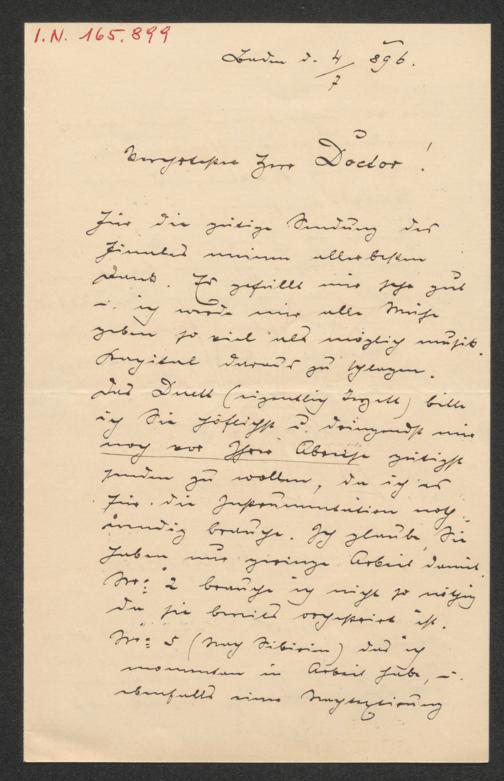 I.N. 165.899
Baden d. 4/7 896.
Verehrtester Herr Doctor!
Für die gütige Sendung des
Finales meinen allerbesten
Dank. Es gefällt mir sehr gut
u. ich werde mir alle Mühe
geben so viel als möglich musik.
Kapital daraus zu schlagen.
Das Duett (eigentlich Terzett) bitte
ich Sie höflichst u. dringendst mir
noch vor Ihrer Abreise gütigst
senden zu wollen, da ich es
für die Instrumentation noth-
wendig brauche. Ich glaube, Sie
haben nur geringe Arbeit damit.
Nro: 2 brauche ich nicht so nöthig
da sie bereits orchestrirt ist.
Nro: 5 (Nach Sibirien) das ich
momentan in Arbeit habe, u.
ebenfalls einer Nachtextirung